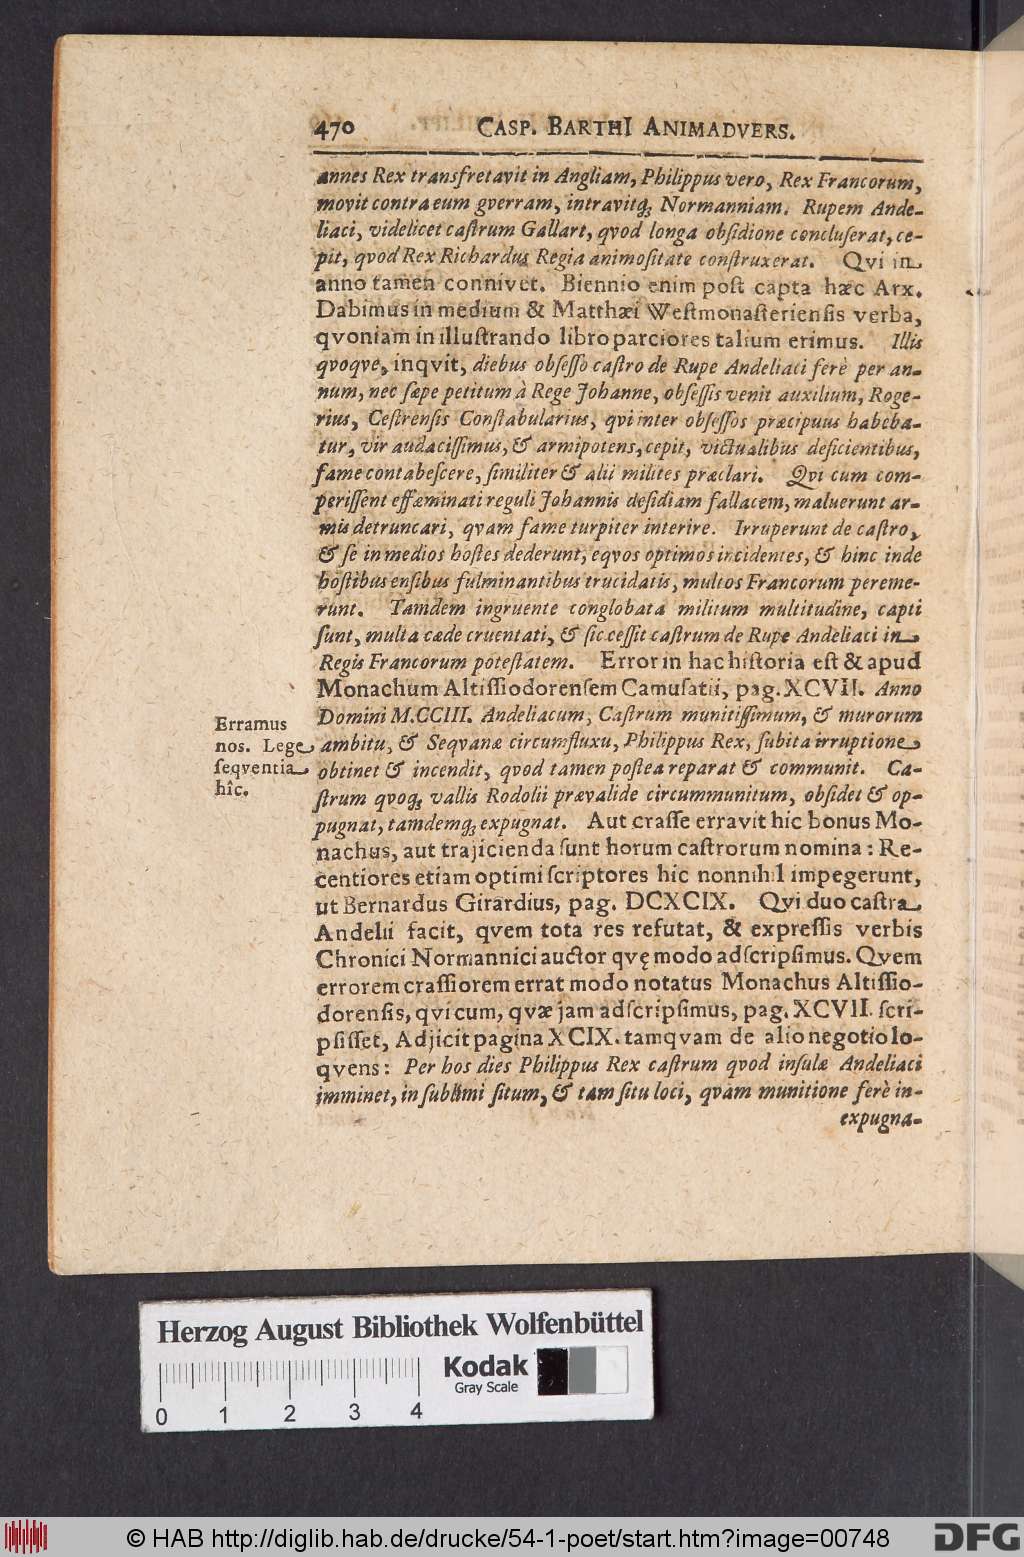 470 CASP. BARTHI ANIMADVERS.
annes Rex transfretavit in Angliam, Philippus vero, Rex Francorum,
movit contra eum gverram, intravitq; Normanniam. Rupem Ande-
liaci, videlicet caſtrum Gallart, qvod longa obſidione concluſerat, ce-
pit, qvod Rex Richardus Regia animoſitate conſtruxerat. Qvi in
anno tamen connivet. Biennio enim poſt capta hæc Arx.
Dabimus in medium & Matthæi Weſtmonaſterienſis verba,
qvoniam in illuſtrando libro parciores talium erimus. Illis
qvoqve, inqvit, diebus obſeſſo caſtro de Rupe Andeliaci ferè per an-
num, nec ſæpe petitum à Rege Johanne, obſeſſis venit auxilium, Roge-
rius, Ceſtrenſis Conſtabularius, qvi inter obſeſſos præcipuus habeba-
tur, vir audaciſſimus, & armipotens, cepit, victualibus deficientibus,
fame contabeſcere, ſimiliter & alii milites præclari. Qvi cum com-
periſſent effæminati reguli Johannis deſidiam fallacem, maluerunt ar-
mis detruncari, qvam fame turpiter interire. Irruperunt de caſtro,
& ſe in medios hoſtes dederunt, eqvos optimos incidentes, & hinc inde
hoſtibus enſibus fulminantibus trucidatis, multos Francorum pereme-
runt. Tamdem ingruente conglobata militum multitudine, capti
ſunt, multa cæde cruentati, & ſic ceſſit caſtrum de Rupe Andeliaci in
Regis Francorum poteſtatem. Error in hac hiſtoria eſt & apud
Monachum Altiſſiodorenſem Camuſatii, pag. XCVII. Anno
Domini M.CCIII. Andeliacum, Caſtrum munitiſſimum, & murorum
ambitu, & Seqvanæ circumfluxu, Philippus Rex, ſubita irruptione
obtinet & incendit, qvod tamen poſtea reparat & communit. Ca-
ſtrum qvoq; vallis Rodolii prævalide circummunitum, obſidet & op-
pugnat, tamdemq; expugnat. Aut craſſe erravit hic bonus Mo-
nachus, aut trajicienda ſunt horum caſtrorum nomina: Re-
centiores etiam optimi ſcriptores hic nonnihil impegerunt,
ut Bernardus Girardius, pag. DCXCIX. Qvi duo caſtra
Andelii facit, qvem tota res refutat, & expreſſis verbis
Chronici Normannici auctor qvę modo adſcripſimus. Qvem
errorem craſſiorem errat modo notatus Monachus Altiſſio-
dorenſis, qvi cum, qvæ jam adſcripſimus, pag. XCVII. ſcri-
pſiſſet, Adjicit pagina XCIX. tamqvam de alio negotio lo-
qvens: Per hos dies Philippus Rex caſtrum qvod inſulæ Andeliaci
imminet, in ſublimi ſitum, & tam ſitu loci, qvam munitione ferè in-
expugna-
Erramus
nos. Lege
ſeqventia
hîc.
Herzog August Bibliothek Wolfenbüttel
Kodak
Gray Scale
0 1 2 3 4
© HAB http://diglib.hab.de/drucke/54-1-poet/start.htm?image=00748
DFG